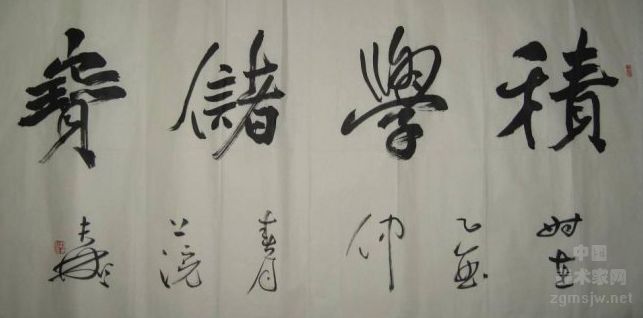 積學儲寶
时在乙仲春月上浣
中国
艺术家网
zgmsjw.net